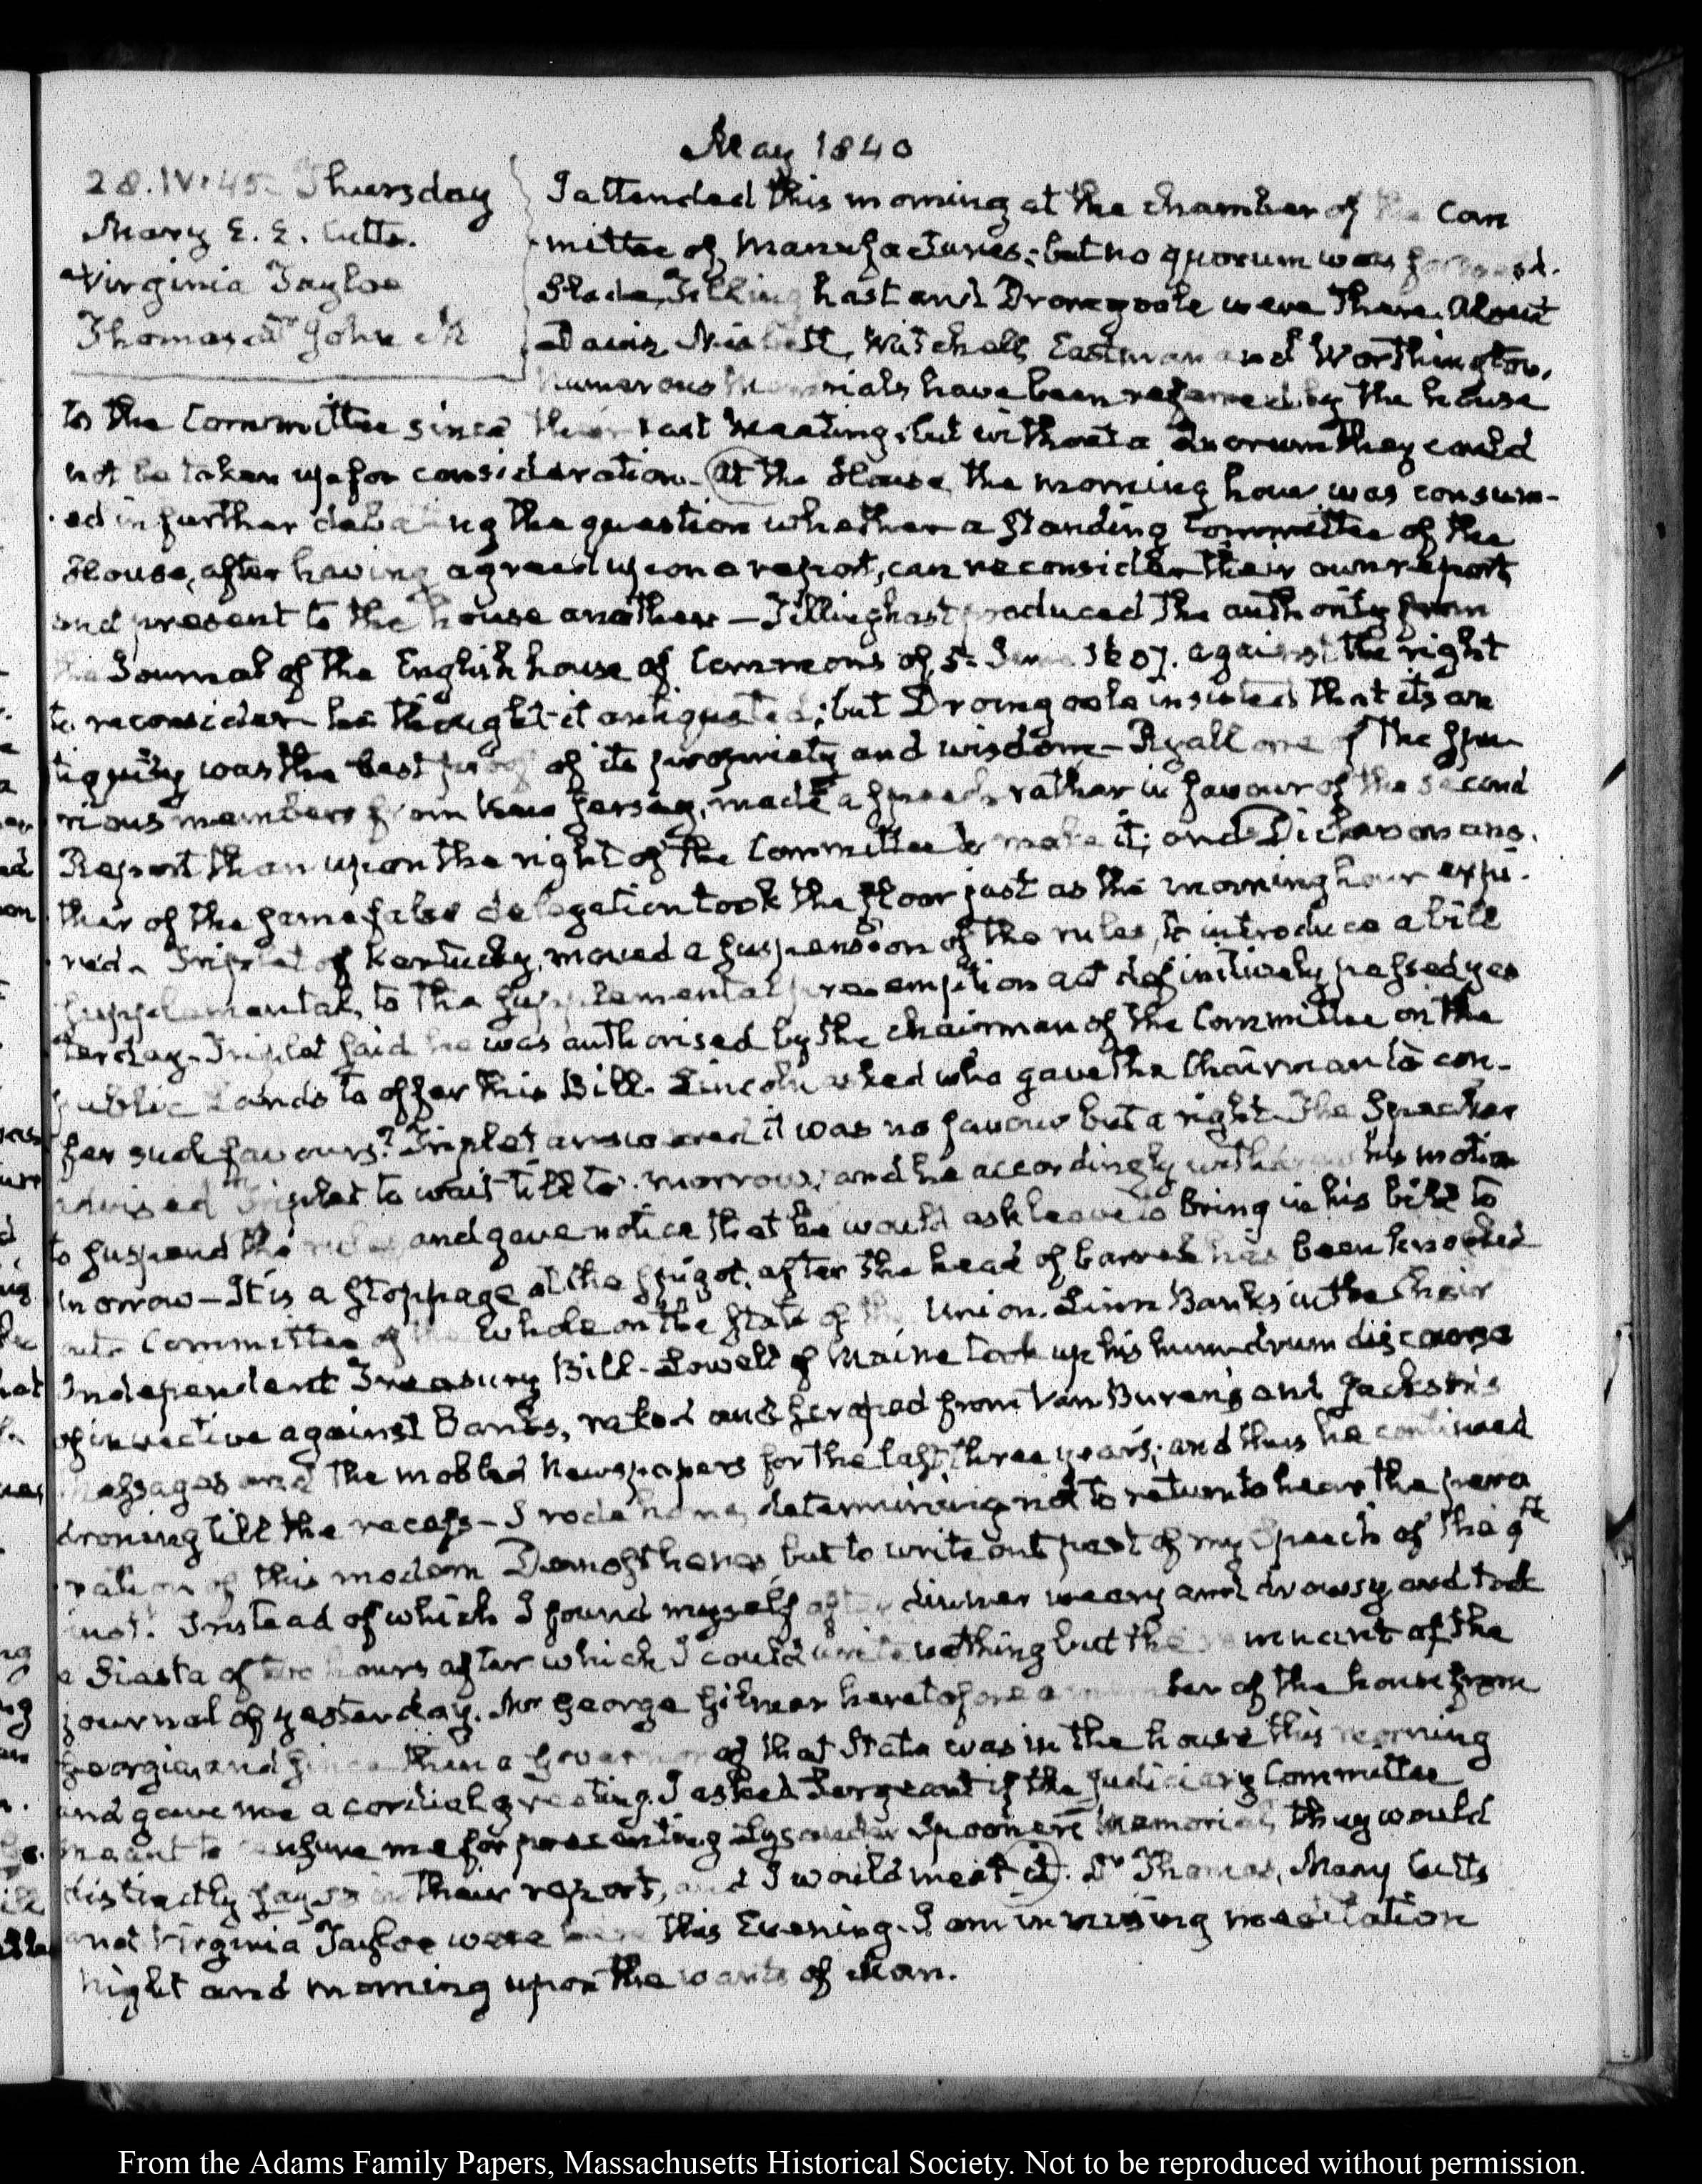 May 1840
28. IV:45. Thursday
Mary E. E. Cutts.
Virginia Tayloe
Thomas Dr John M
I attended this morning at the chamber of the Com
mittee of Manufactures; but no quorum was formed.
Slade, Tillinghast and Dromgoole were there. Absent
Davis, Nisbett, Mitchell, Eastman and Worthington.
Numerous Memorials have been referred by the house
to the Committee since their last Meeting, but without a Quorum they could
not be taken up for consideration. At the House, the morning hour was consum-
ed in further debating the question whether a standing Committee of the
House, after having agreed upon a report, can reconsider their own report
and present to the house another — Tillinghast produced the authority from
the Journal of the English house of Commons of 5. June 1607. against the right
to reconsider he thought it antiquated; but Dromgoole insisted that its an
tiquity was the best proof of its propriety and wisdom — Ryall one of the spu
rious members from New Jersey, made a speech rather in favour of the second
Report than upon the right of the Committee to make it; and Dickerson ano-
ther of the same false delegation took the floor just as the morning hour expi-
red. Triplet of Kentucky, moved a suspension of the rules, to introduce a bill
supplemental, to the supplemental pre-emption act definitively passed yes
terday. Triplet said he was authorised by the chairman of the Committee on the
public Lands to offer this Bill. Lincoln asked who gave the Chairman to con-
fer such favours? Triplet answered it was no favour but a right. The Speaker
advised Triplet to wait till to-morrow; and he accordingly withdrew his motion
to suspend the rules and gave notice that he would ask leave to bring in his bill to
morrow — It is a stoppage at the spigot, after the head of barrel has been knocked
out. Committee of the Whole on the state of the Union. Linn Banks in the Chair
Independent Treasury Bill. Lowell of Maine took up his humdrum discourse
of invective against Banks, raked and scraped from Van Buren's and Jackson's
Messages and the mobled Newspapers for the last three years; and thus he continued
droning till the recess — I rode home, determining not to return to hear the pero
ration of this modern Demosthenes, but to write out part of my Speech of the 9th
inst. Instead of which I found myself after dinner weary and drowsy and took
a Siesta of two hours after which I could write nothing but the remnant of the
journal of yesterday. Mr George Gilmer heretofore a member of the house from
Georgia, and since then a Governor of that State was in the house this morning
and gave me a cordial greeting. I asked Sergeant if the Judiciary Committee
meant to censure me for presenting Lysander Spooner's memorial, they would
distinctly say so in their report, and I would meet it. Dr Thomas, Mary Cutts
and Virginia Tayloe were here this Evening. I am in musing meditation
night and morning upon the wants of Man.
From the Adams Family Papers, Massachusetts Historical Society. Not to be reproduced without permission.